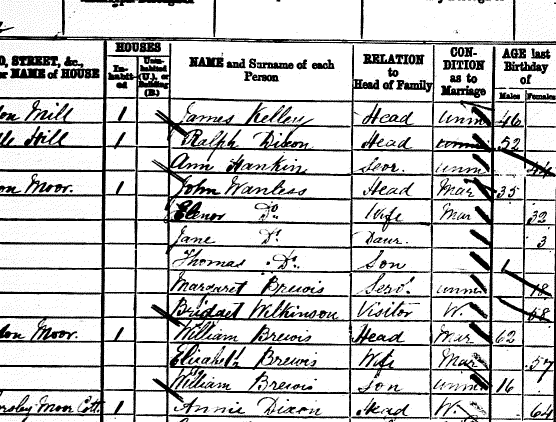 HOUSES
O, STREET, &c., or NAME of HOUSE
In-habit-ed
Unin-habited (U.), or Building (B.)
NAME and Surname of each Person
RELATION to Head of Family
CON-DITION as to Marriage
AGE last Birthday of
Males Females
on Mill 1 James Kelley Head unm 46
le Hill 1 Ralph Dixon Head unm 52
Ann Hankin Serv. unm 44
on Moor. 1 John Wanless Head Mar 35
Elenor Do Wife Mar 32
Jane Do Daur. 3
Thomas Do Son 1
Margaret Brewis Servt. unm 18
Bridget Wilkinson Visitor W. 68
don Moor. 1 William Brewis Head Mar 62
Elizabeth Brewis Wife Mar 57
William Brewis Son unm 16
orsley Moor Cott. 1 Annie Dixon Head W. 64